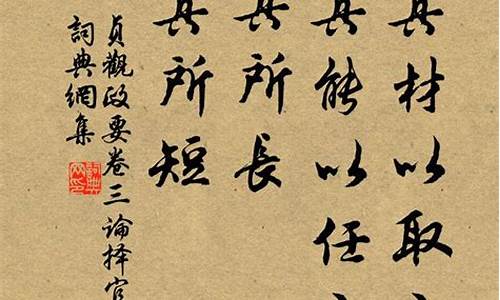 其材以取
其能以任
其所長
其所短
貞觀政要卷三論择官
詞典網集